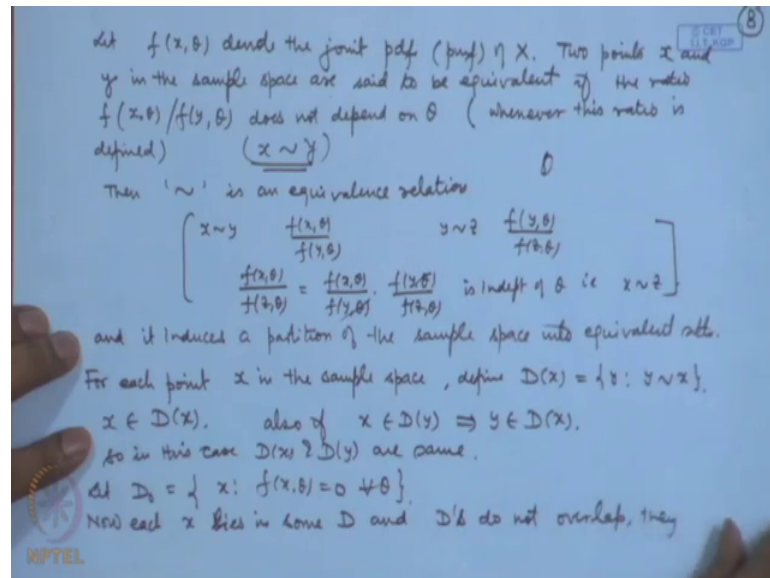 8
© CET
I.I.T. KGP
Let f(x,θ) denote the joint pdf (pmf) of X. Two points x and
y in the sample space are said to be equivalent if the ratio
f(x,θ)/f(y,θ) does not depend on θ ( whenever this ratio is
defined) (x ~ y)
Then '~' is an equivalence relation
x~y f(x,θ)/f(y,θ) y~z f(y,θ)/f(z,θ)
f(x,θ)/f(z,θ) = f(x,θ)/f(y,θ) . f(y,θ)/f(z,θ) is indept of θ ie x~z
and it induces a partition of the sample space into equivalent sets.
For each point x in the sample space, define D(x) = {y: y~x}.
x ∈ D(x). also if x ∈ D(y) ⇒ y ∈ D(x).
so in this case D(x) & D(y) are same.
Let D₀ = { x: f(x,θ)=0 ∀ θ}.
Now each x lies in some D and D's do not overlap, they
NPTEL